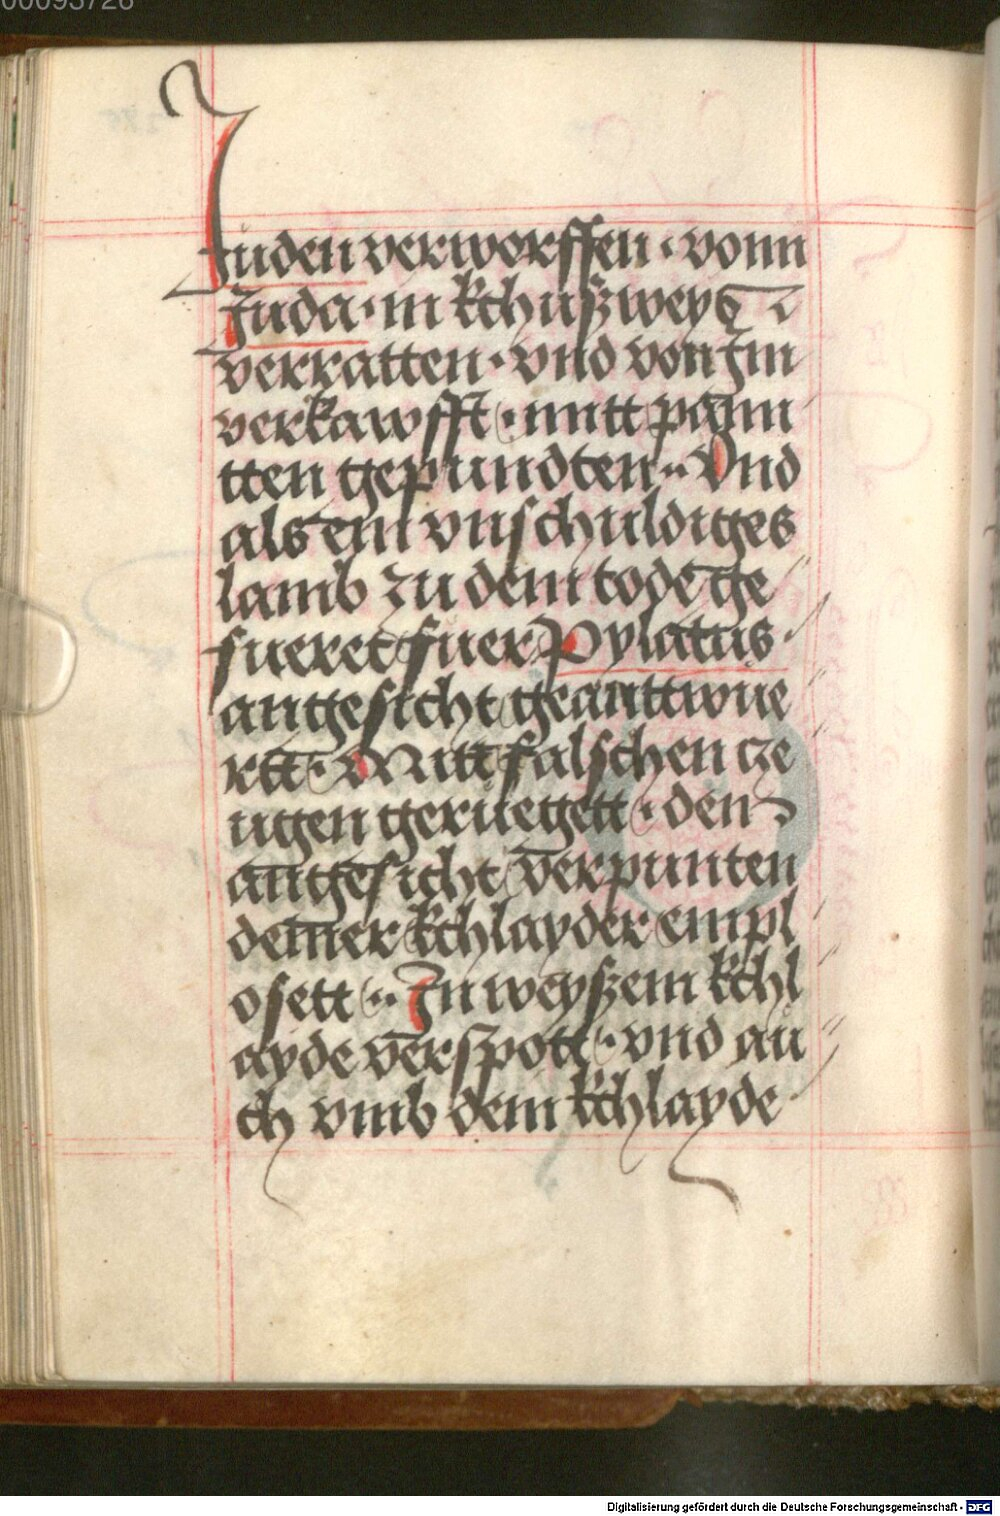 00093728
Juden verwerffen · vonn
Juda · in kchuszweys
verratten · vnd von Jm
verkawfft · mitt pann
tten gepundten ·· Vnd
als ein vnschuldiges
lamb zu dem tode ge
fueret fuer Pylatus ·
angesicht geanttwue
rtt · Mitt falschen cze
ugen geruegett · den
angesicht verpunten
deiner kchlayder empl
osett ·· Jn weyszem kchl
ayde verspott · vnd au
ch vmb dem kchlayde
Digitalisierung gefördert durch die Deutsche Forschungsgemeinschaft - DFG